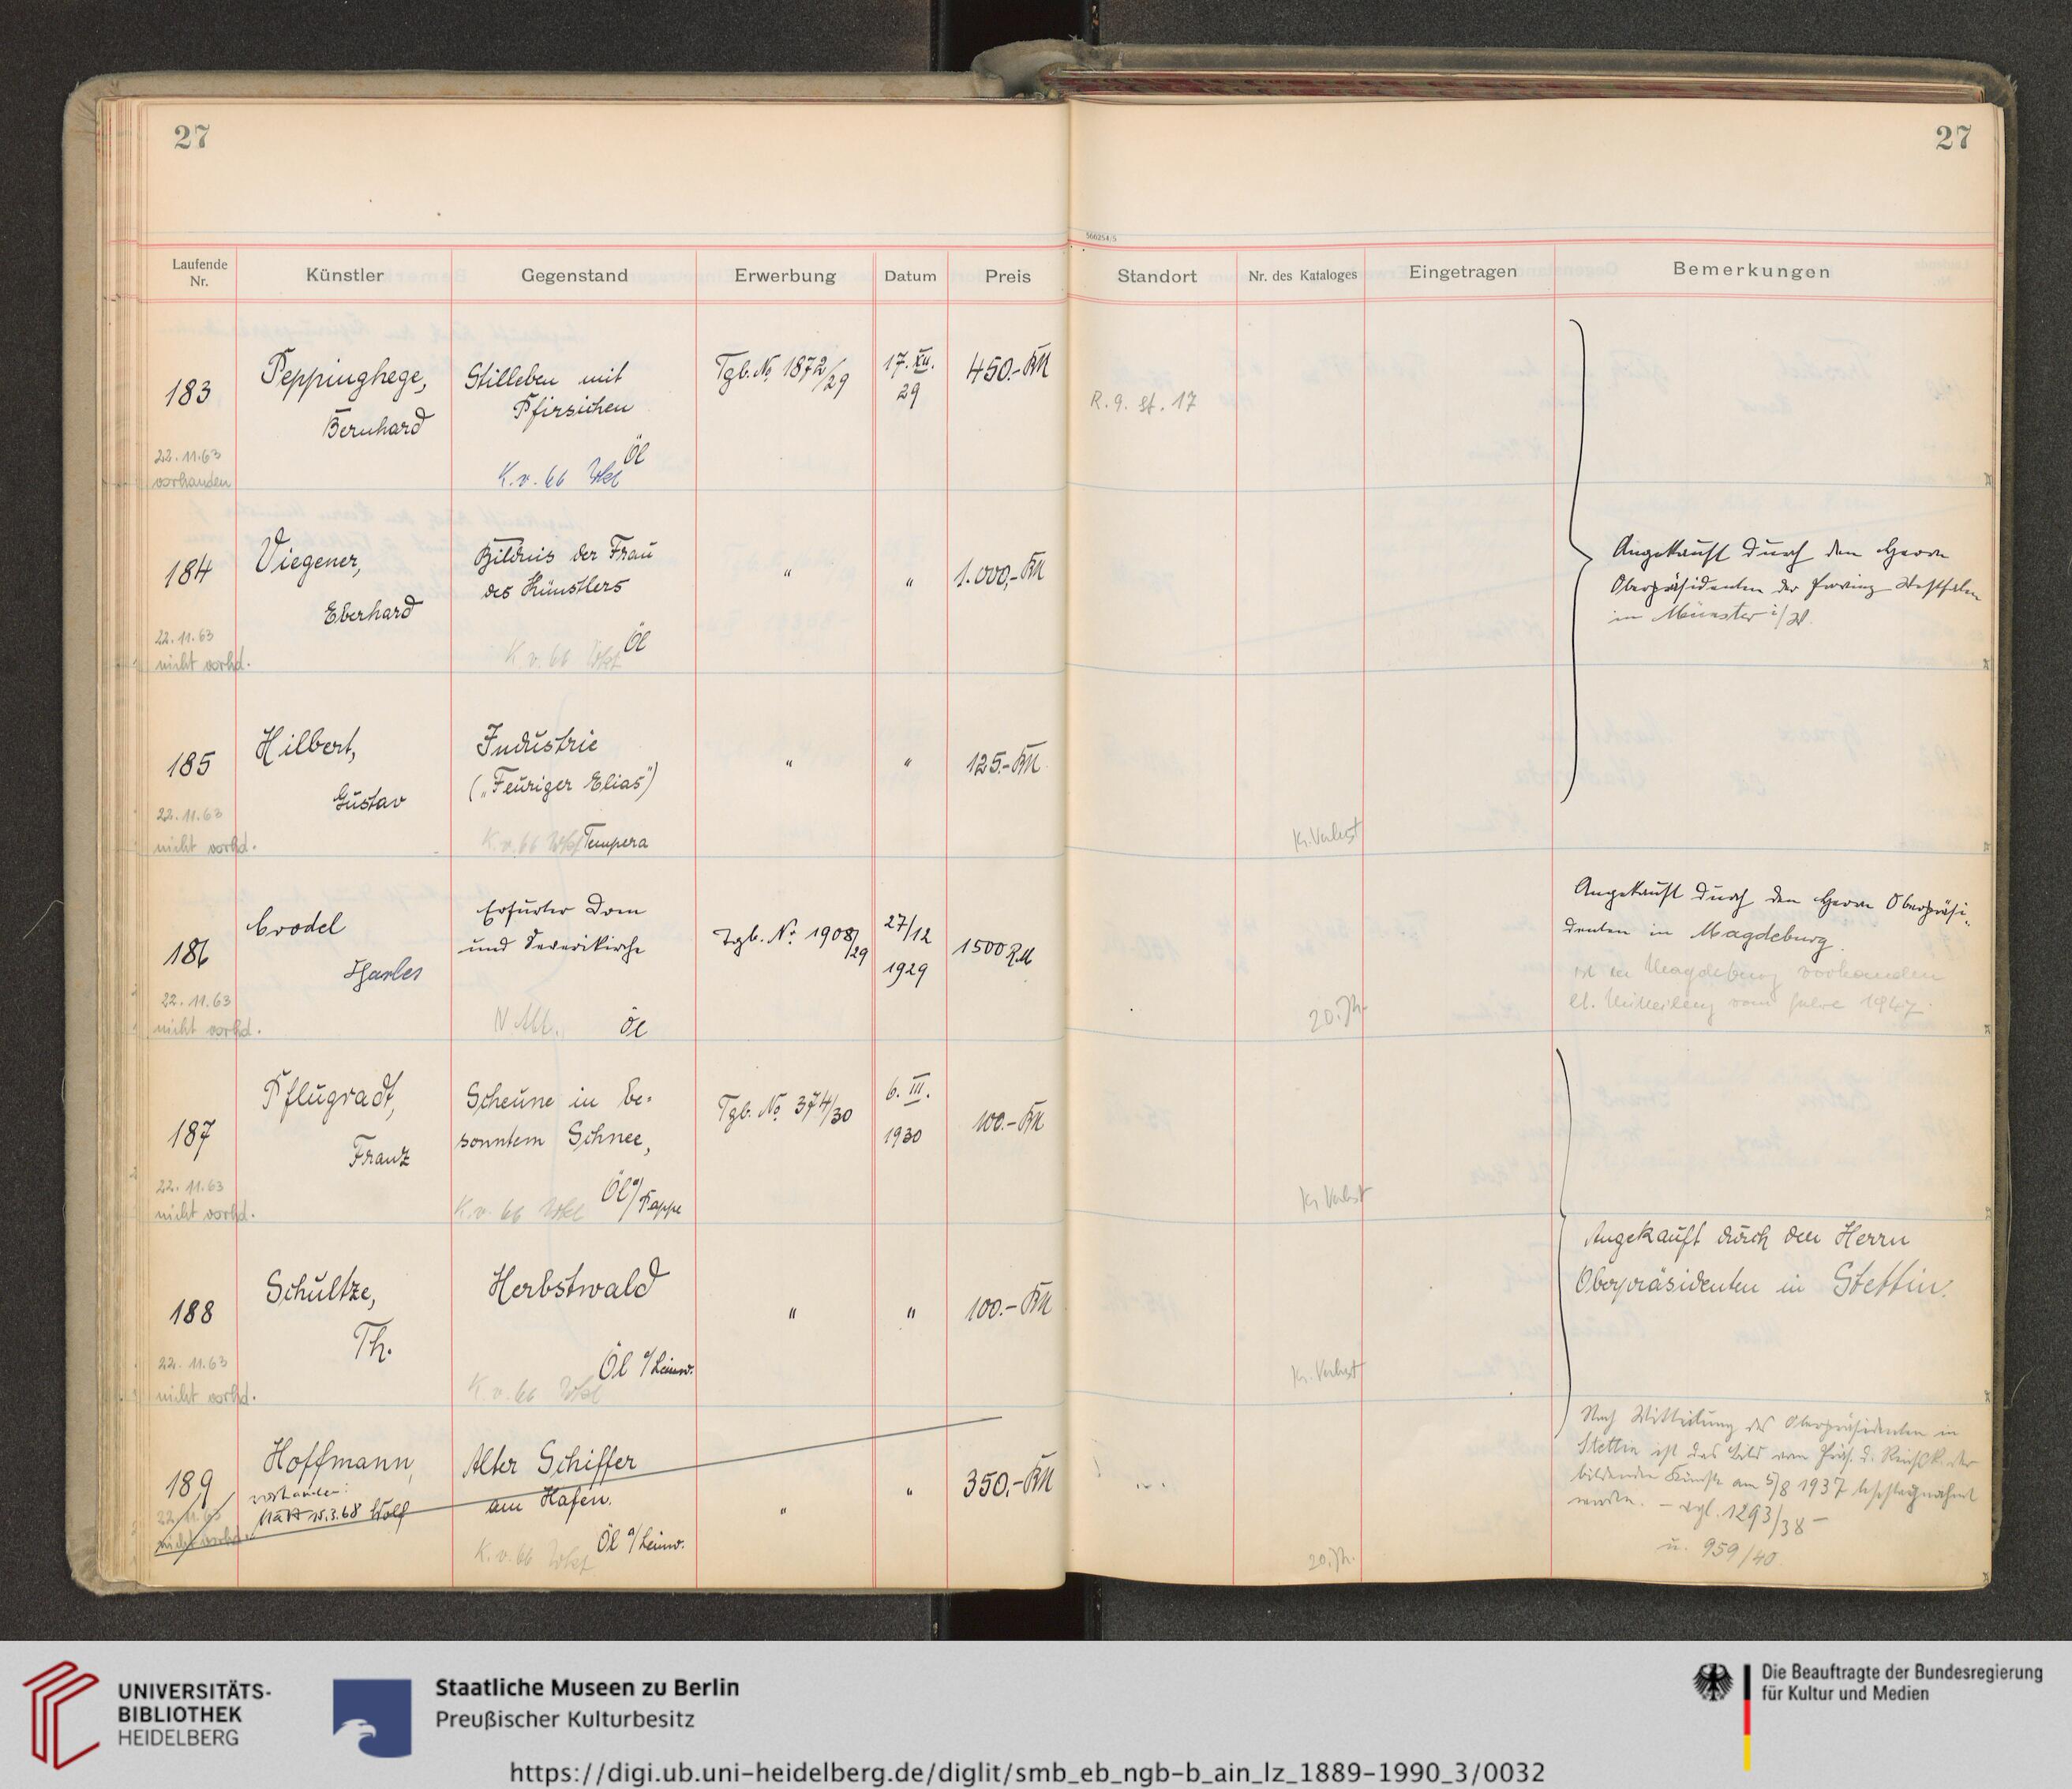 27
27
566254/5
Laufende Nr.
Künstler
Gegenstand
Erwerbung
Datum
Preis
Standort
Nr. des Kataloges
Eingetragen
Bemerkungen
183
Peppinghege,
Bernhard
Stilleben mit
Pfirsichen
Öl
K.v. 66
Tgb. No 1872/29
17. XII.
29
450.- RM
R. 9. St. 17
22.11.63
vorhanden
184
Viegener,
Eberhard
Bildnis der Frau
des Künstlers
Öl
K.v. 66
"
"
1.000,- RM
22.11.63
nicht vorhd.
Angekauft durch den Herrn
Oberpräsidenten der Provinz Westfalen
in Münster i/W.
185
Hilbert,
Gustav
Industrie
(„Feuriger Elias")
K.v. 66
Tempera
"
"
125.- RM
22.11.63
nicht vorhd.
Kr. Verlust
186
Crodel
Charles
Erfurter Dom
und Severikirche
N Abt.
Öl
Tgb. No. 1908/29
27/12
1929
1500 RM
22.11.63
nicht vorhd.
20. Jh.
Angekauft durch den Herrn Oberpräsi-
denten in Magdeburg.
ist in Magdeburg vorhanden
lt. Mitteilung vom Jahre 1947.
187
Pflugradt,
Franz
Scheune in be-
sonntem Schnee,
Öl a/Pappe
K.v. 66
Tgb. No 374/30
6. III.
1930
100.- RM
22.11.63
nicht vorhd.
Kr. Verlust
188
Schultze,
Th.
Herbstwald
Öl a/Leinw.
K.v. 66
"
"
100.- RM
22.11.63
nicht vorhd.
Kr. Verlust
Angekauft durch den Herrn
Oberpräsidenten in Stettin.
189
Hoffmann,
vorhanden:
15.3.68 Wolf
Alter Schiffer
am Hafen.
Öl a/Leinw.
K.v. 66
"
"
350,- RM
22.11.63
nicht vorhd.
20. Jh.
Nach Mitteilung des Oberpräsidenten in
Stettin ist das Bild vom Präs. d. Reichsk. der
bildenden Künste am 5/8 1937 beschlagnahmt
worden. - vgl. 1293/38 -
u. 959/40.
UNIVERSITÄTS-
BIBLIOTHEK
HEIDELBERG
Staatliche Museen zu Berlin
Preußischer Kulturbesitz
Die Beauftragte der Bundesregierung
für Kultur und Medien
https://digi.ub.uni-heidelberg.de/diglit/smb_eb_ngb-b_ain_lz_1889-1990_3/0032